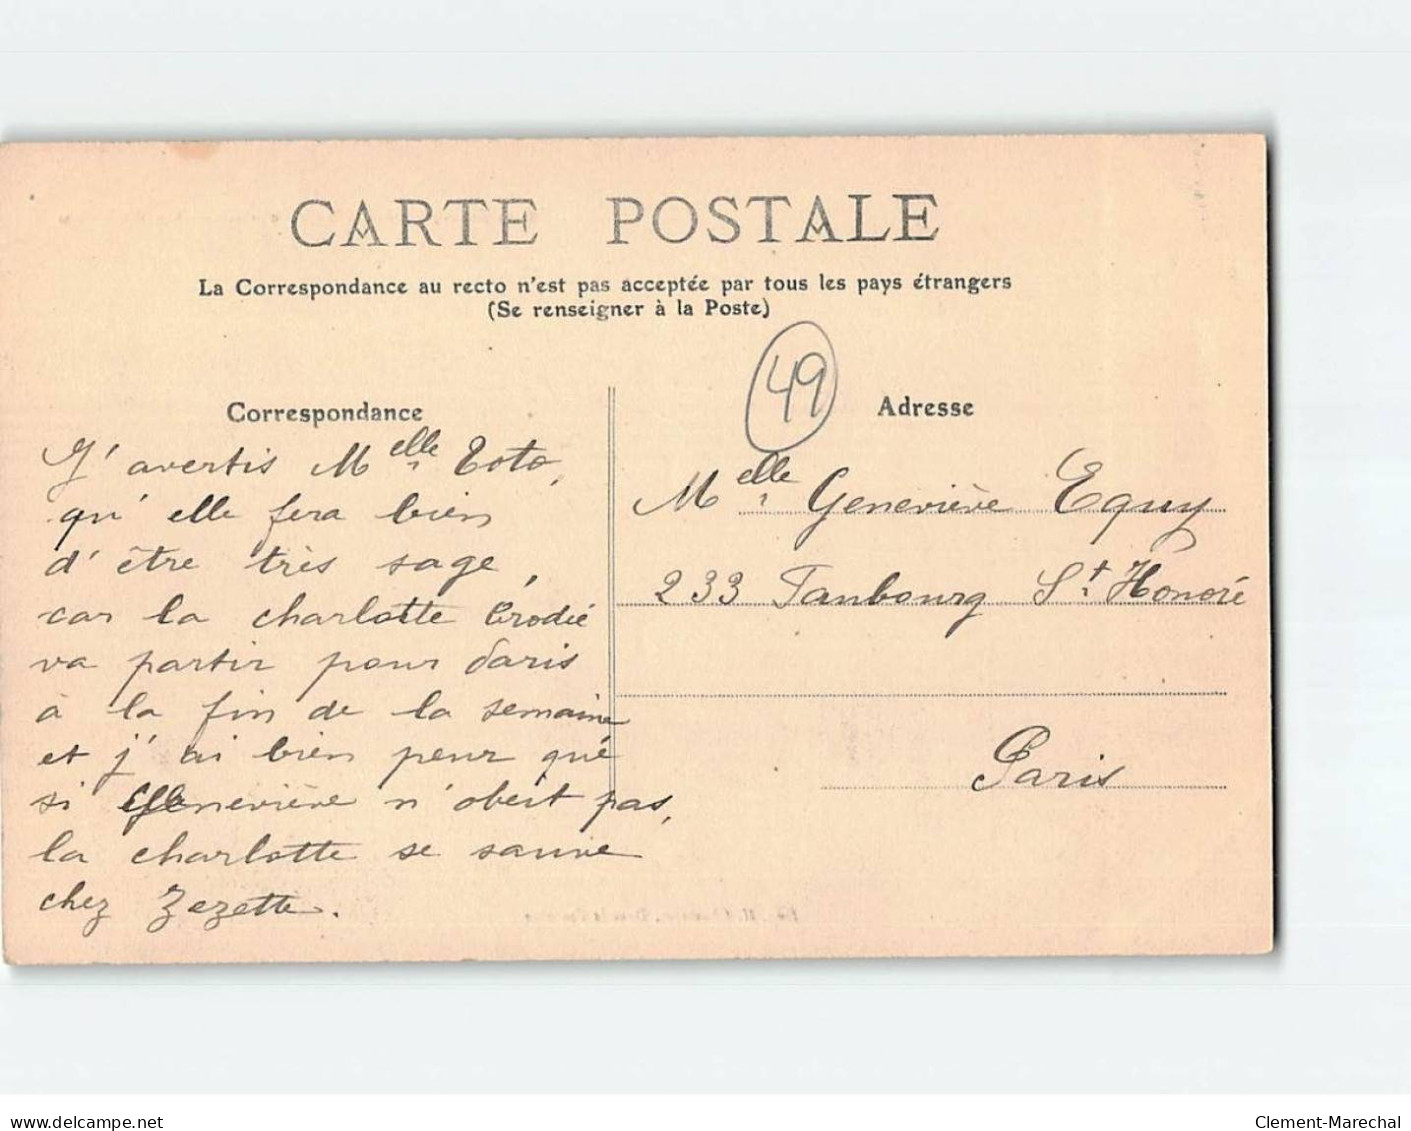 CARTE POSTALE
La Correspondance au recto n'est pas acceptée par tous les pays étrangers
(Se renseigner à la Poste)
49
Correspondance
J'avertis Melle Toto,
qu'elle fera bien
d'être très sage,
car la charlotte brodée
va partir pour Paris
à la fin de la semaine
et j'ai bien peur que
si Geneviève n'obeit pas,
la charlotte se sauve
chez Zezette.
Adresse
Melle Geneviève Equy
233 Faubourg St Honoré
Paris
delcampe.net
Clement-Marechal